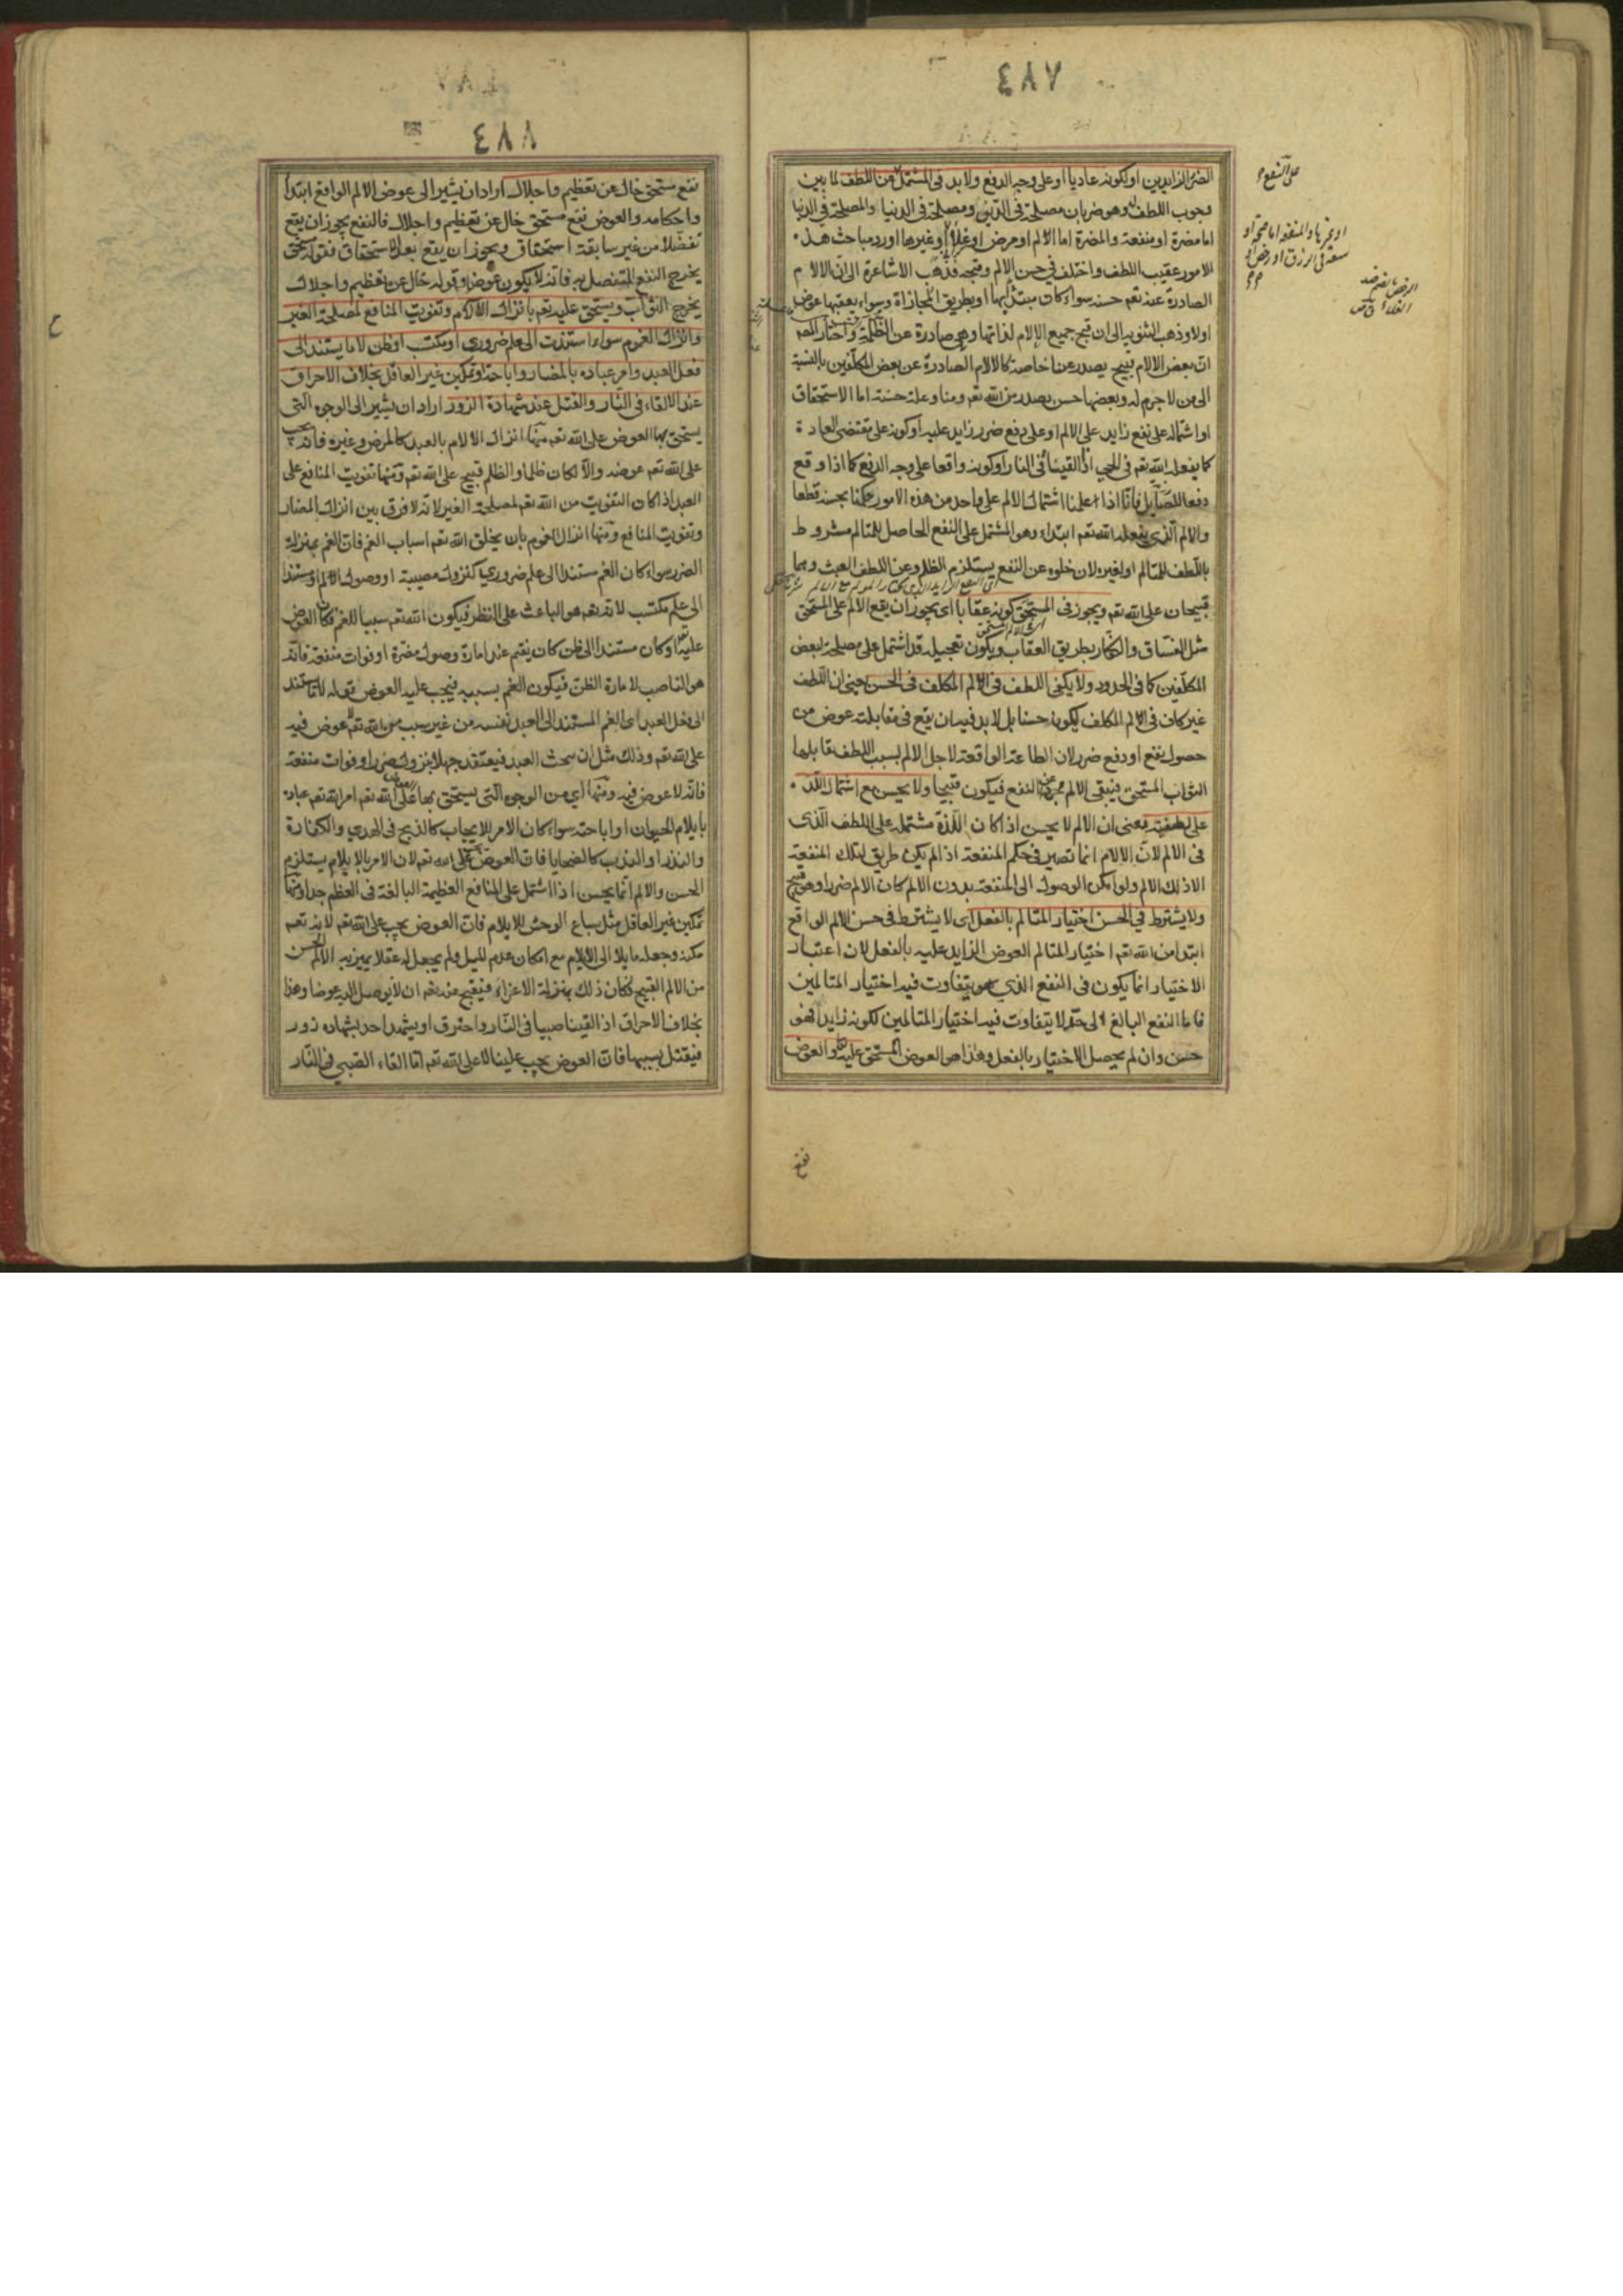 ٤٨٧
الضررالزايدين اولكونه عاديا او على وجه الدفع ولابد فى المشتمل من اللطف لما بين
وجوب اللطف وهو ضربان مصلحة فى الدين ومصلحة فى الدنيا والمصلحة فى الدنيا
اما مضرة او منفعة والمضرة اما الالم او مرض او غلاء او غيرها اورد مباحث هذه
الامور عقيب اللطف واختلف فى حسن الالم وقبحه فذهب الاشاعرة الى ان الالام
الصادرة عنه تعم حسنه سواء كان مبتدأ بها او بطريق المجازاة وسواء يعقبها عوض
اولا وذهب الثنويه الى ان قبح جميع الالام لذاتها وهى صادرة عن الظلمة واختار المصـ
ان بعض الالام قبيح يصدر عنا خاصة كالالام الصادرة عن بعض المكلفين بالنسبة
الى من لا جرم له وبعضها حسن يصدر من الله تعم ومنا وعلة حسنه اما الاستحقاق
او اشتماله على نفع زايد على الالم او على دفع ضرر زايد عليه او كونه على مقتضى العادة
كما يفعله الله تعم فى الحي اذا القيناه فى النار او كونه واقعا على وجه الدفع كما اذا وقع
دفعا للصايل فانا اذا علمنا اشتمال الالم على واحد من هذه الامور حكمنا بحسنه قطعا
والالم الذى يفعله الله تعم ابتداء وهو المشتمل على النفع الحاصل للمتالم مشروط
باللطف للمتالم او لغيره لان خلوه عن النفع يستلزم الظلم وعن اللطف العبث وهما
قبيحان على الله تعم ويجوز فى المستحق كونه عقابا اى يجوز ان يقع الالم على المستحق
مثل الفساق والكفار بطريق العقاب ويكون تعجيله قد اشتمل على مصلحة لبعض
المكلفين كما فى الحدود ولا يكفى اللطف فى الم المكلف فى الحسن يعنى ان اللطف
غير كاف فى الم المكلف ليكونه حسنا بل لابد فيه ان يقع فى مقابلته عوض من
حصول نفع او دفع ضرر لان الطاعة الواقعة لاجل الالم بسبب اللطف يقابلها
الثواب المستحق فيبقى الالم مجردا عن النفع فيكون قبيحا ولا يحسن مع اشتمال اللذه
على لطفيته يعنى ان الالم لا يحسن اذا كان اللذة مشتملة على اللطف الذى
فى الالم لان الالام انما تصير فى حكم المنفعة اذا لم يكن طريق لتلك المنفعة
الا ذلك الالم ولو امكن الوصول الى المنفعة بدون الالم كان الالم ضررا وهو قبيح
ولا يشترط فى الحسن اختيار المتالم بالفعل اى لا يشترط فى حسن الالم الواقع
ابتدا من الله تعم اختيار المتالم العوض الزايد عليه بالفعل لان اعتبار
الاختيار انما يكون فى النفع الذى هو يتفاوت فيه اختيار المتالمين
فاما النفع البالغ الى حد لا يتفاوت فيه اختيار المتالمين لكونه زايدا فهو
حسن وان لم يحصل الاختيار بالفعل وهذا هو العوض المستحق عليه تعم والعوض
نفع
على النفع
٤٨٨
نفع مستحق خال عن تعظيم واجلال اراد ان يشير الى عوض الالم الواقع ابتدا
واحكامه والعوض نفع مستحق خال عن تعظيم واجلال فالنفع يجوز ان يقع
تفضلا من غير سابقة استحقاق ويجوز ان يقع بعد الاستحقاق فقوله مستحق
يخرج النفع المتفضل به فانه لا يكون عوضا وقوله خال عن تعظيم واجلال
يخرج الثواب ويستحق عليه تعم بانزال الالام وتفويت المنافع لمصلحة الغير
وانزال الغموم سواء استندت الى علم ضرورى او مكتسب او ظن لا ما يستند الى
فعل العبد وامر عباده بالمضار واباحته وتمكين غير العاقل بخلاف الاحراق
عند الالقاء فى النار والقتل عند شهادة الزور اراد ان يشير الى الوجوه التى
يستحق بها العوض على الله تعم منها انزال الالام بالعبد كالمرض وغيره فانه يجب
على الله تعم عوضه والا لكان ظلما والظلم قبيح على الله تعم ومنها تفويت المنافع على
العبد اذا كان التفويت من الله تعم لمصلحة الغير لانه لا فرق بين انزال المضار
وتفويت المنافع ومنها انزال الغموم بان يخلق الله تعم اسباب الغم فان الغم بمنزلة
الضرر سواء كان الغم مستندا الى علم ضرورى كنزول مصيبة او وصول الالم او مستندا
الى علم مكتسب لانه تعم هو الباعث على النظر فيكون الله تعم سببا للغم فكان العوض
عليه او كان مستندا الى ظن كان يقيم عند امارة وصول مضرة او فوات منفعة فانه
هو الناصب لامارة الظن فيكون الغم بسببه فيجب عليه العوض قوله لا ما يستند
الى فعل العبد اى الغم المستند الى العبد نفسه من غير سبب من الله تعم لا عوض فيه
على الله تعم وذلك مثل ان يبحث العبد فيعتقد جهلا بنزول ضرر او فوات منفعة
فانه لا عوض فيه ومنها اى من الوجوه التى يستحق بها العوض على الله تعم امر الله تعم عباده
بايلام الحيوان او اباحته سواء كان الامر للايجاب كالذبح فى الهدى والكفارة
والنذر او الندب كالضحايا فان العوض على الله تعم لان الامر بالايلام يستلزم
الحسن والالم انما يحسن اذا اشتمل على المنافع العظيمة البالغة فى العظم جدا ومنها
تمكين غير العاقل مثل سباع الوحش للايلام فان العوض يجب على الله تعم لانه تعم
مكنه وجعله مايلا الى الايلام مع امكان عدم الميل ولم يجعل له عقلا يميز به الالم الحسن
من الالم القبيح فكان ذلك بمنزلة الاغراء فيقبح منه تعم ان لا يوصل اليه عوضا وهذا
بخلاف الاحراق اذ القينا صبيا فى النار واحترق او يشهد احد بشهادة زور
فيقتل بسببها فان العوض يجب علينا لا على الله تعم اما القاء الصبى فى النار